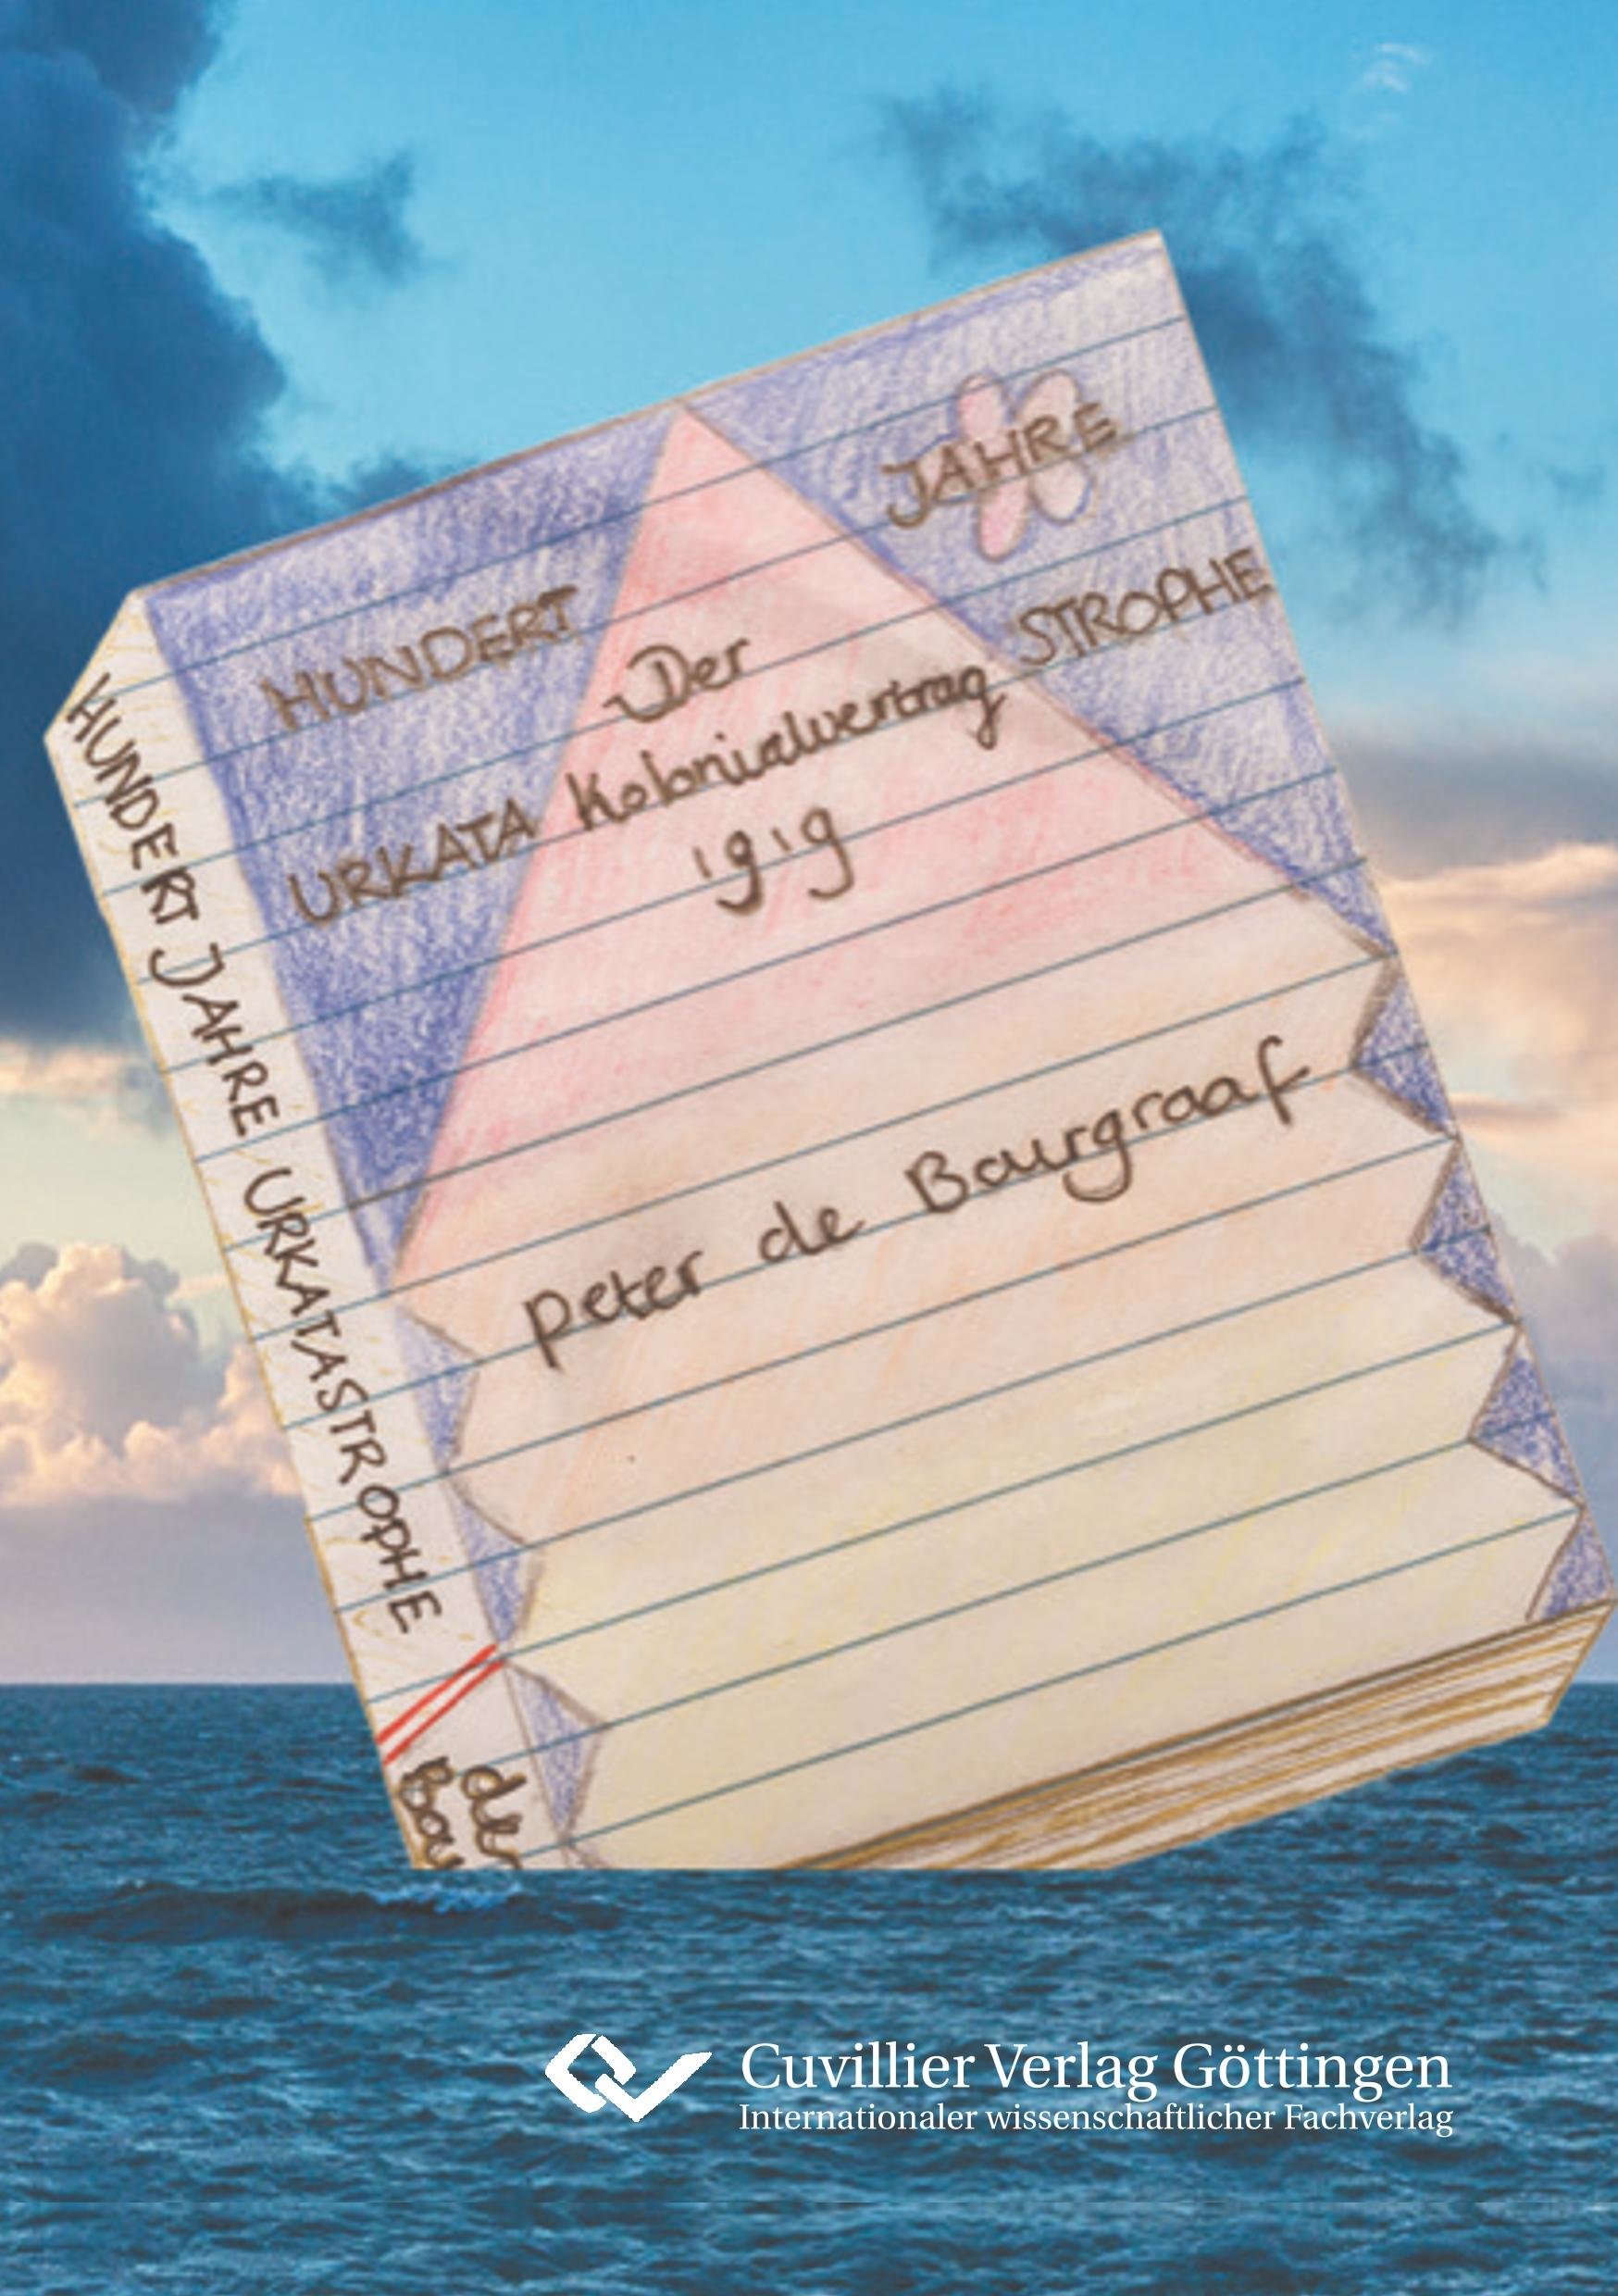 HUNDERT JAHRE
URKATA STROPHE
Der
Kolonialvertrag
1919
Peter de Bourgraaf
HUNDERT JAHRE URKATASTROPHE
de
Bou
Cuvillier Verlag Göttingen
Internationaler wissenschaftlicher Fachverlag